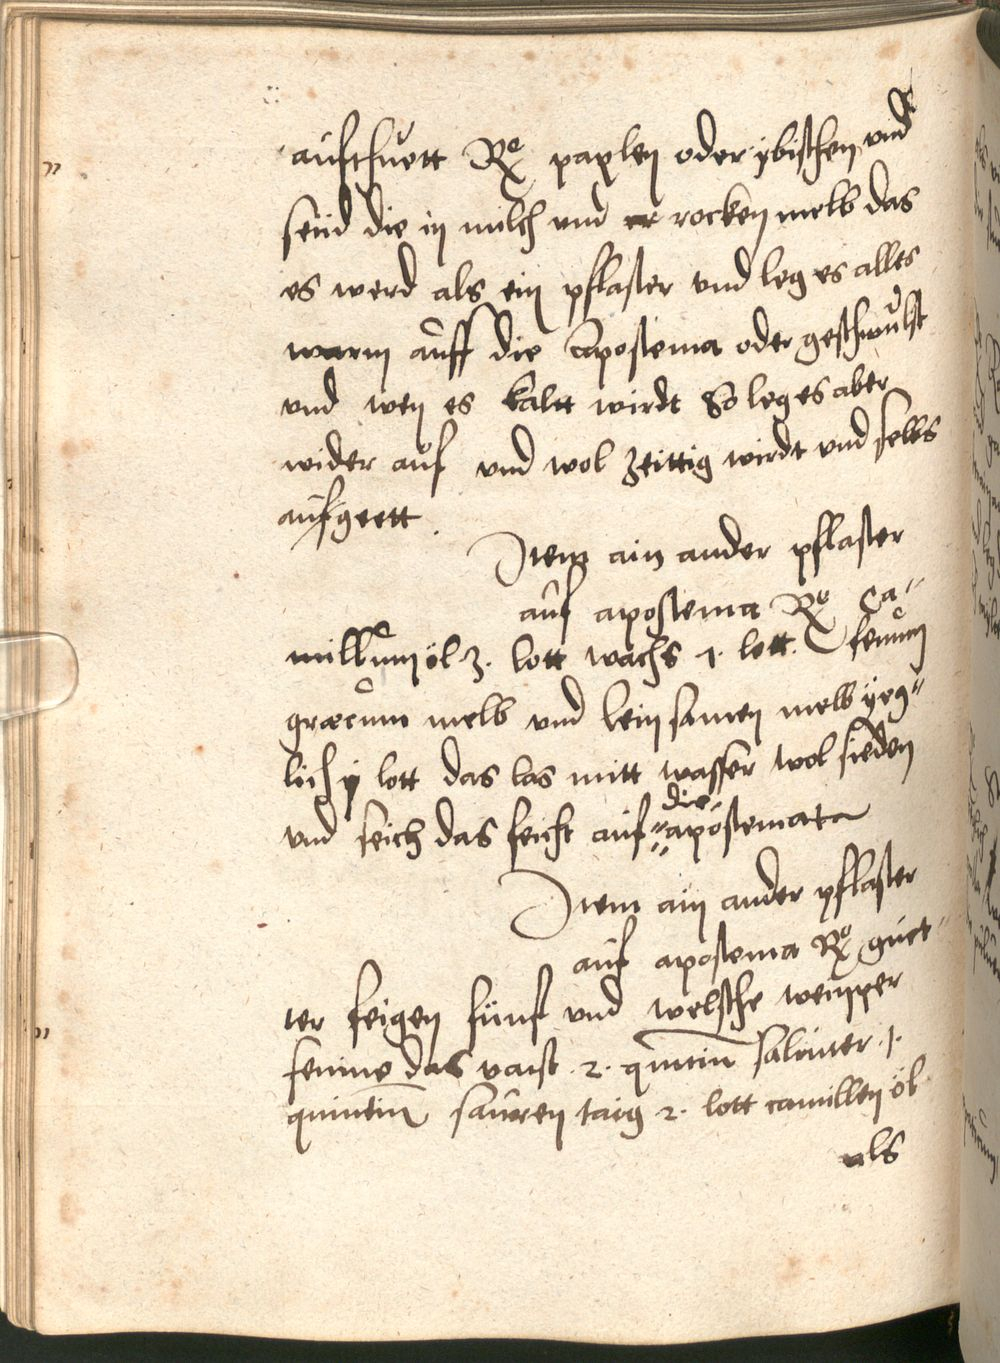 aufthuett Rę paplen oder ybischen und
seüd die in milch und rocken melb das
es werd als ein pflaster und leg es alles
warm auff die apostema oder geschwulst
und wen es kaltt wirdt So leg es aber
wider auf und wol zeittig wirdt und selbs
aufgeett.
Item ain ander pflaster
auf apostema Rę Ca⸗
millumöl 3. lott wachs 1. lott. fenum
græcum melb und leinsamen melb yeg⸗
lich ij lott das las mitt wasser wol sieden
und seich das feicht auf die apostemata
Item ain ander pflaster
auf apostema Rę guet⸗
ter feigen fünf und welsche weinper
fenine das vaist 2. quintin saliniter 1.
quintin sauren taig 2. lott camillen öl
als